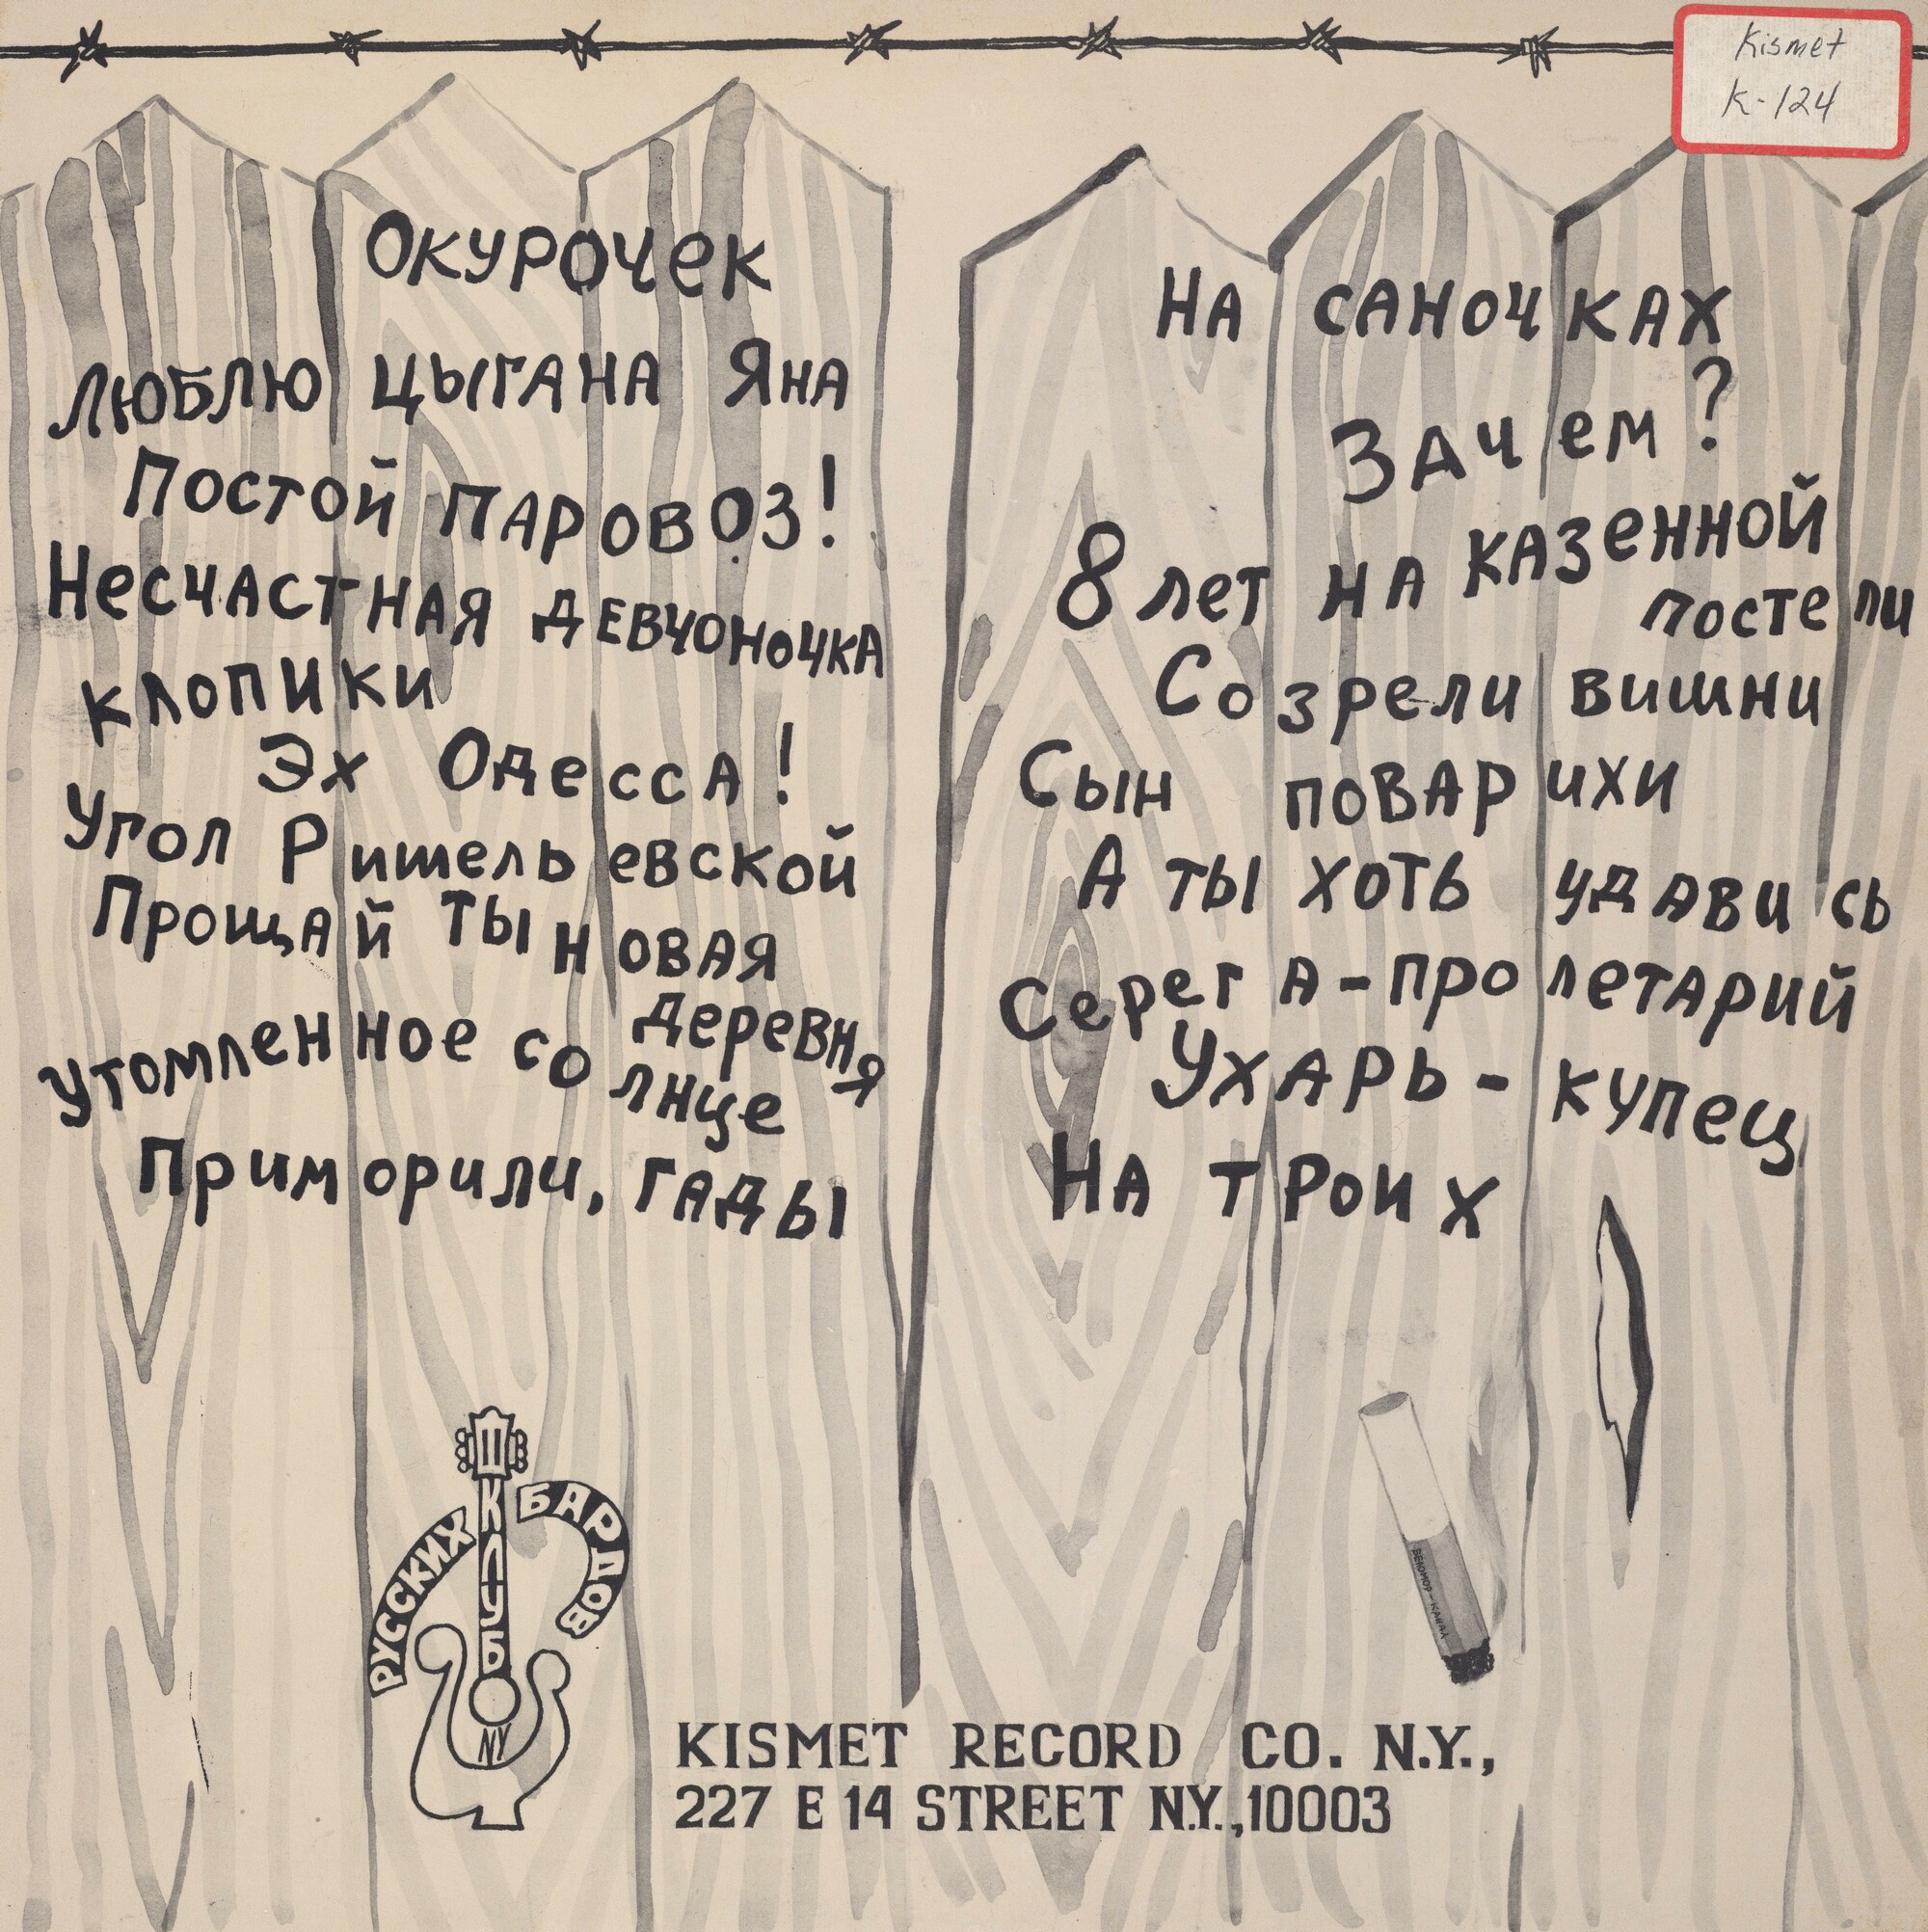 Kismet
K-124
Окурочек
Люблю цыгана Яна
Постой паровоз!
Несчастная девчоночка
клопики
Эх Одесса!
Угол Ришельевской
Прощай ты новая
деревня
Утомленное солнце
Приморили, гады
На саночках
Зачем?
8 лет на казенной
постели
Созрели вишни
Сын поварихи
А ты хоть удавись
Серега-пролетарий
Ухарь-купец
На троих
РУССКИХ
КЛУБ
БАРДОВ
NY
БЕЛОМОР-КАНАЛ
KISMET RECORD CO. N.Y.,
227 E 14 STREET N.Y.,10003